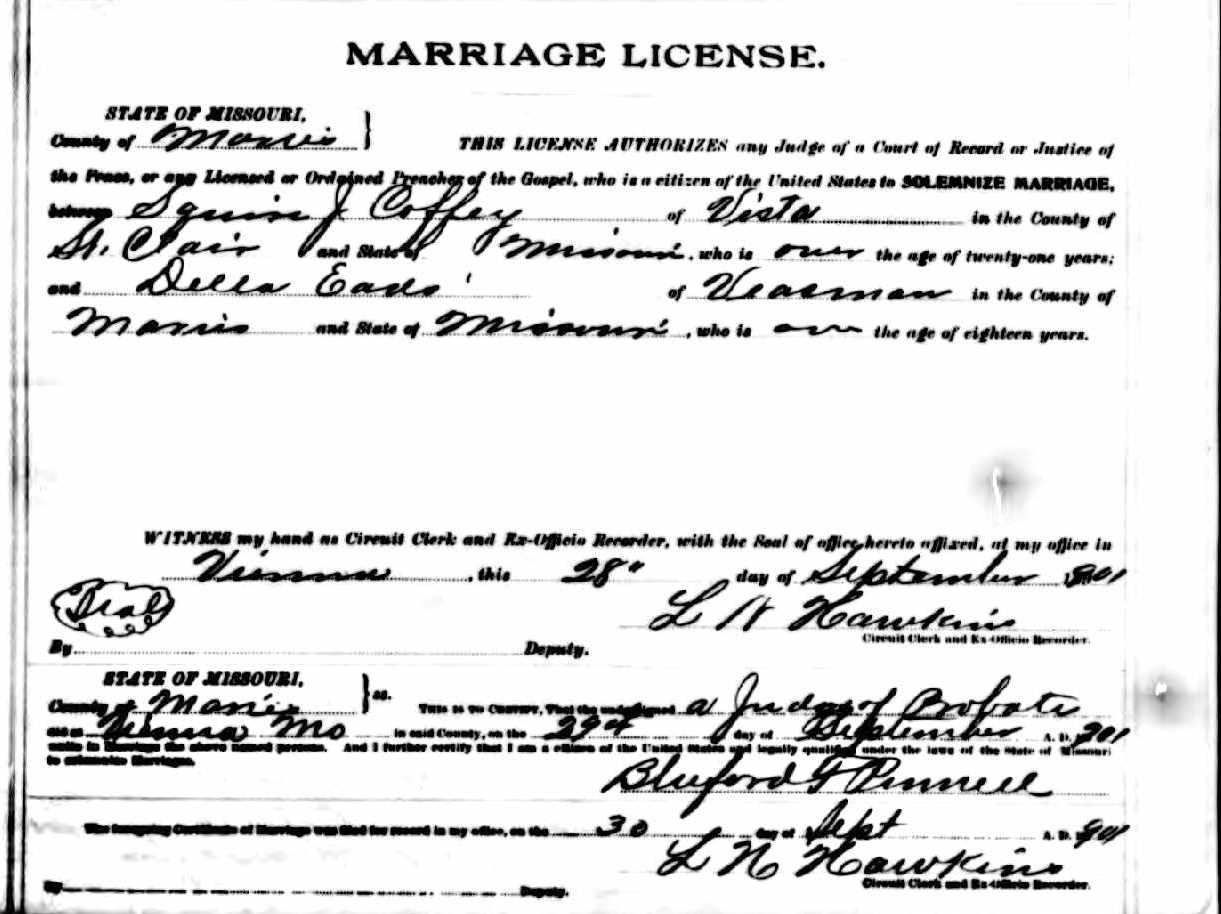 MARRIAGE LICENSE.
STATE OF MISSOURI,
County of Maries } THIS LICENSE AUTHORIZES any Judge of a Court of Record or Justice of
the Peace, or any Licensed or Ordained Preacher of the Gospel, who is a citizen of the United States to SOLEMNIZE MARRIAGE,
between Squire J Coffey of Vista in the County of
St. Clair and State of Missouri, who is over the age of twenty-one years;
and Della Eads of Veasman in the County of
Maries and State of Missouri, who is over the age of eighteen years.
WITNESS my hand as Circuit Clerk and Ex-Officio Recorder, with the Seal of office hereto affixed, at my office in
Vienna, this 28" day of September 1901
(Seal) L N Hawkins
Circuit Clerk and Ex-Officio Recorder.
By Deputy.
STATE OF MISSOURI,
County of Maries } ss. THIS IS TO CERTIFY, That the undersigned a Judge of Probate
Vienna Mo in said County, on the 29th day of September A. D. 1901
unite in Marriage the above named persons. And I further certify that I am a citizen of the United States and legally qualified under the laws of the State of Missouri
to solemnize Marriages.
Bluford G Pinnell
The foregoing Certificate of Marriage was filed for record in my office, on the 30 day of Sept A. D. 1901
L N Hawkins
Circuit Clerk and Ex-Officio Recorder.
By Deputy.